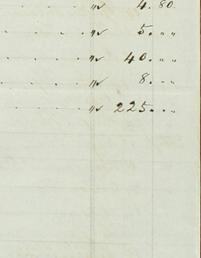 " 4.80.
" 5. „
" 40. „
" 8. „
" 225. „